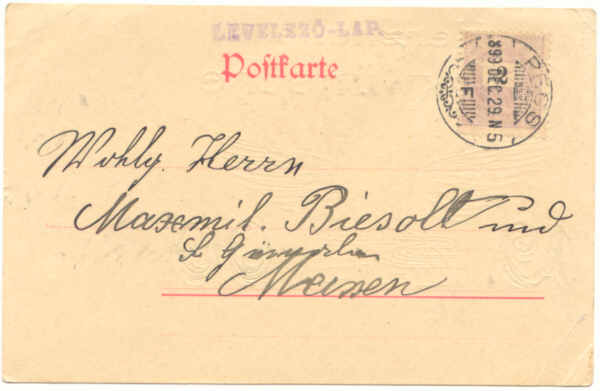 LEVELEZŐ-LAP.
Postkarte
PÉCS
899 DEC. 29. N 5
F
Wohlg. Herrn
Maxmil. Biesolt und
Meissen